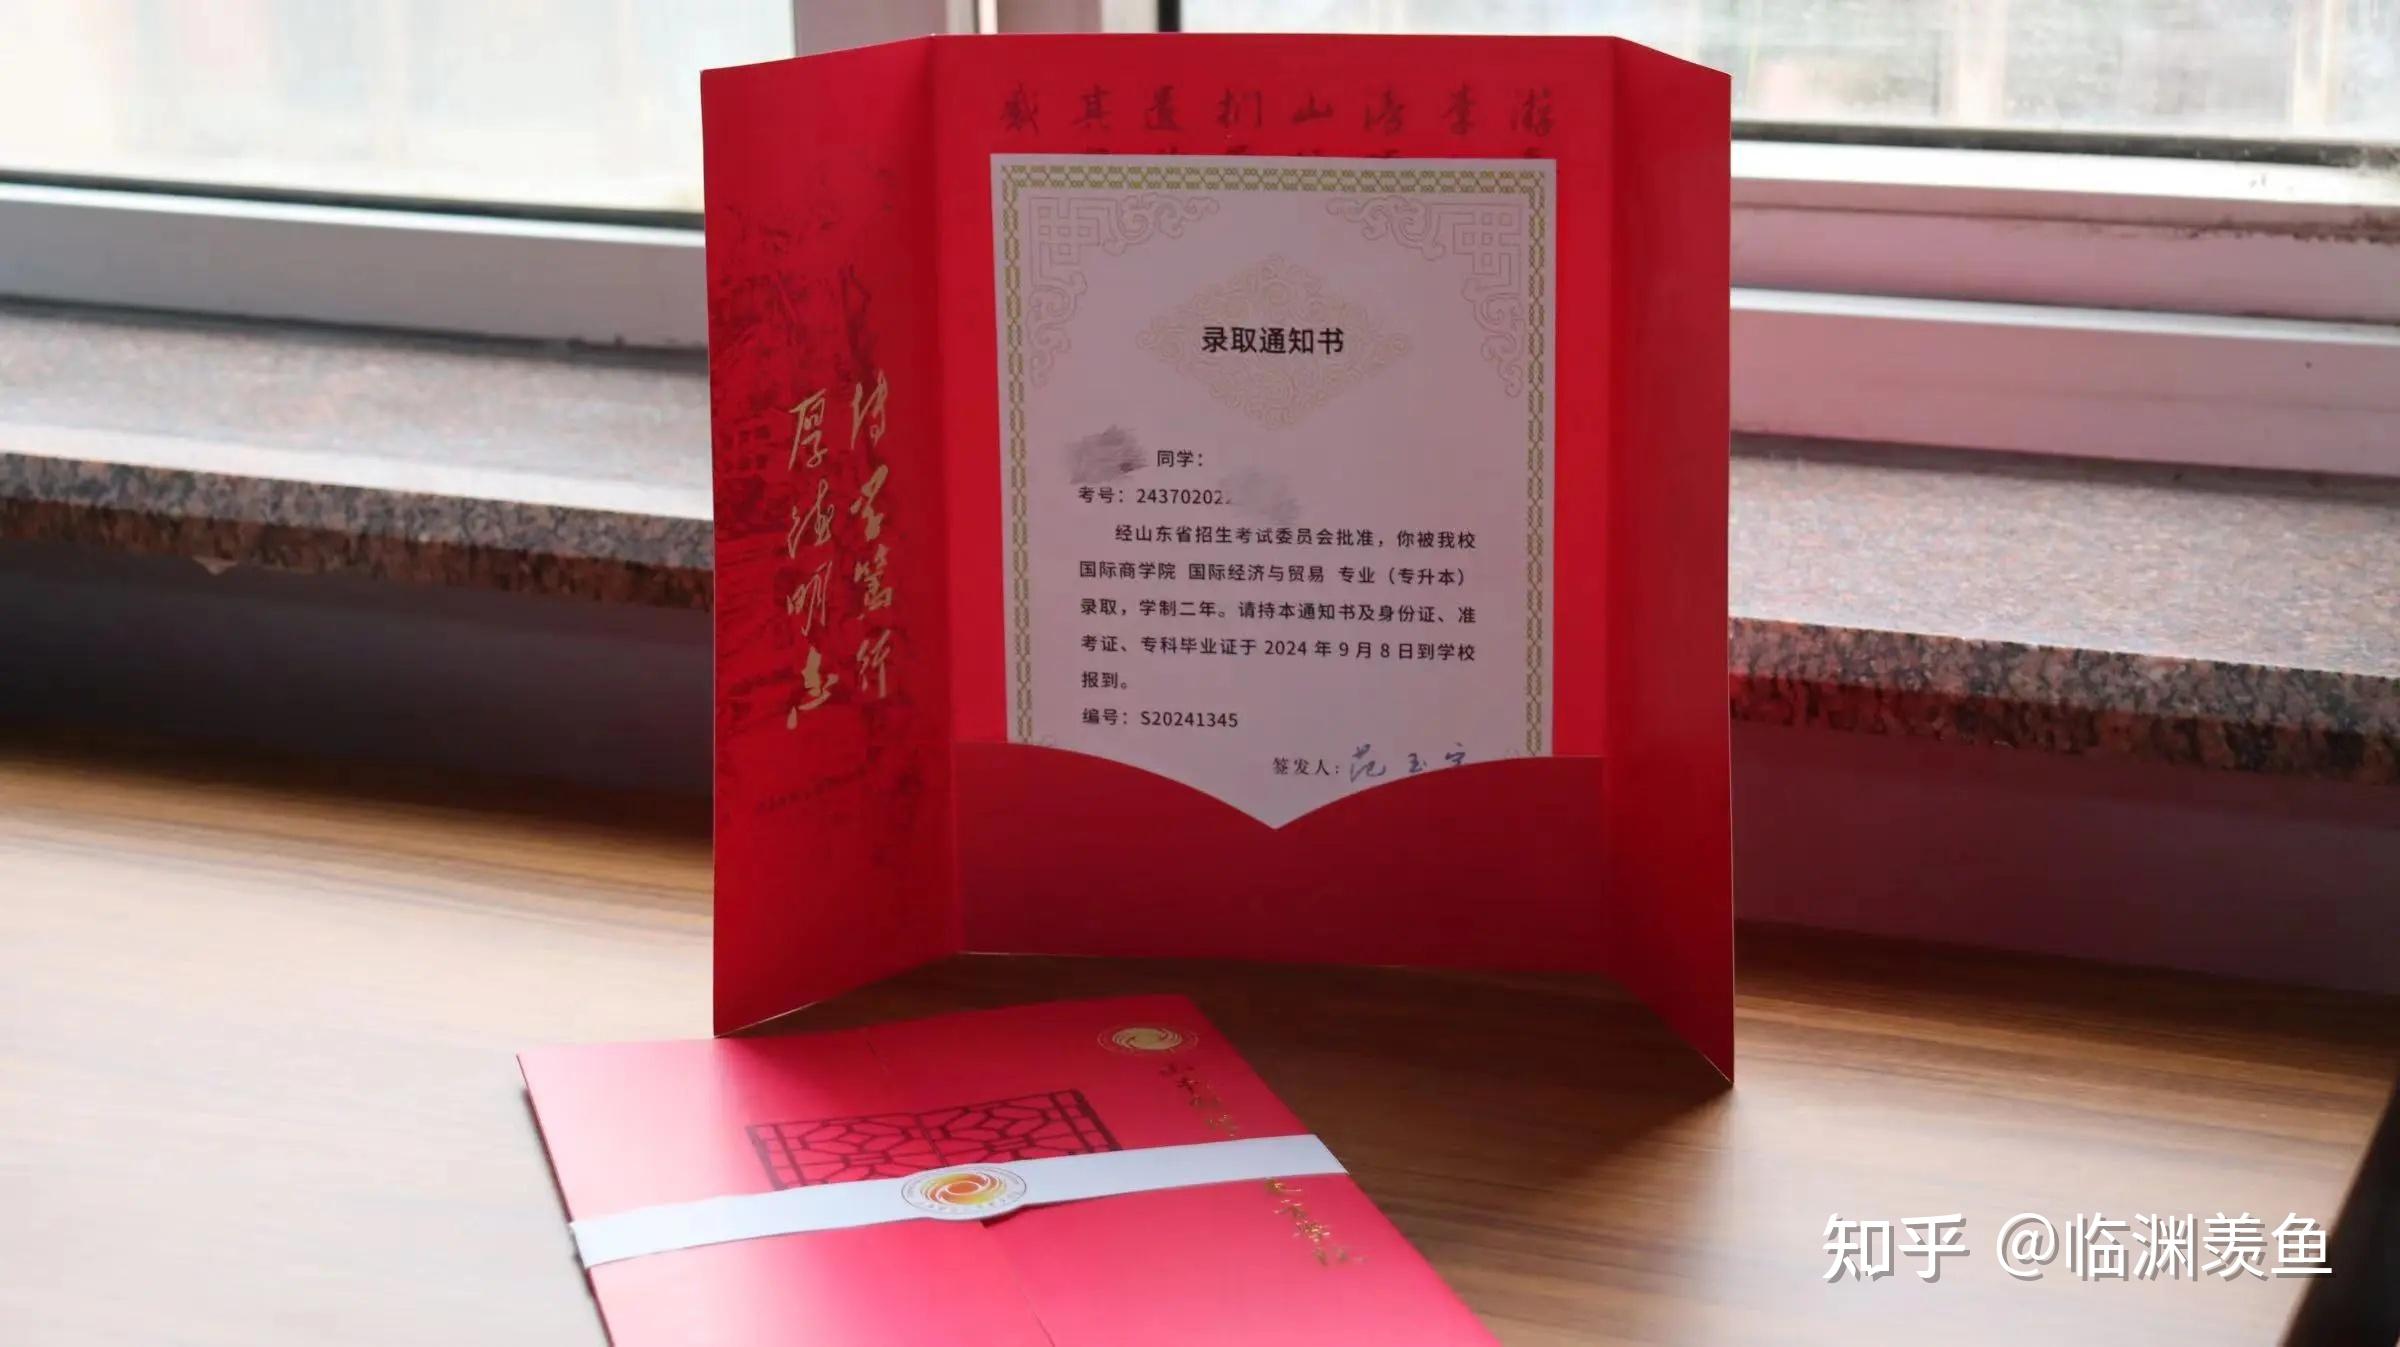 录取通知书
同学：
考号：24370202
经山东省招生考试委员会批准，你被我校
国际商学院 国际经济与贸易 专业（专升本）
录取，学制二年。请持本通知书及身份证、准
考证、专科毕业证于 2024 年 9 月 8 日到学校
报到。
编号：S20241345
签发人：范玉
博学笃行
厚德明志
知乎 @临渊羡鱼